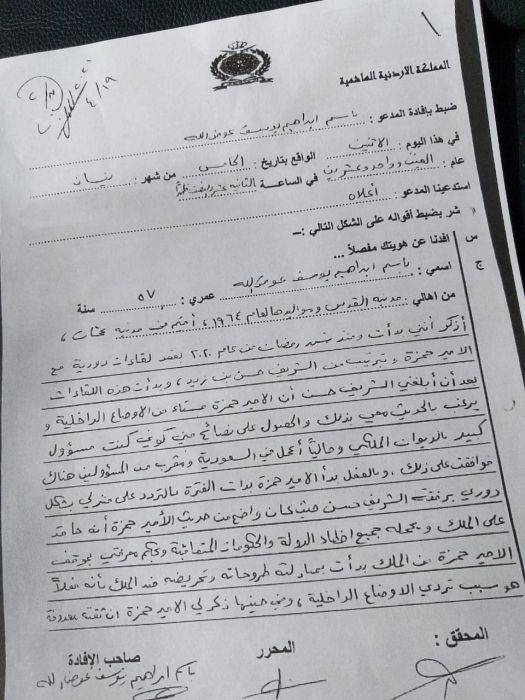 ١
٤/١٩
المملكة الاردنية الهاشمية
ضبط بإفادة المدعو : باسم ابراهيم يوسف عوض الله
في هذا اليوم : الاثنين الواقع بتاريخ : الخامس من شهر : نيسان
عام : الفين وواحد وعشرين في الساعة الثانية عشر ونصف ظهراً
استدعينا المدعو : أعلاه
شر بضبط أقواله على الشكل التالي :–
س افدنا عن هويتك مفصلاً ...
ج اسمي : باسم ابراهيم يوسف عوض الله عمري : ٥٧ سنة
من اهالي : مدينة القدس ومواليدها لعام ١٩٦٤ ، أقيم في مدينة عمان ،
أذكر أنني بدأت ومنذ شهر رمضان من عام ٢٠٢٠ بعقد لقاءات دورية مع
الامير حمزة وبترتيب من الشريف حسن بن زيد ، وبدأت هذه اللقاءات
بعد أن أبلغني الشريف حسن أن الامير حمزة مستاء من الاوضاع الداخلية و
يرغب بالحديث معي بذلك والحصول على نصائح مني كوني كنت مسؤول
كبير بالديوان الملكي وحالياً أعمل في السعودية ومقرب من المسؤولين هناك
فوافقت على ذلك . وبالفعل بدأ الامير حمزة بذات الفترة بالتردد على منزلي بشكل
دوري برفقة الشريف حسن حيث كان واضح من حديث الأمير حمزة أنه حاقد
على الملك ويحمله جميع اخطاء الدولة والحكومات المتعاقبة وبحكم معرفتي بموقف
الامير حمزة من الملك بدأت بمبادلته طروحاته وتحريضه ضد الملك بأنه فعلاً
هو سبب تردي الاوضاع الداخلية ، وفي حينها ذكر لي الامير حمزة ان ثقته معدومة
المحقق : المحرر صاحب الإفادة
باسم ابراهيم يوسف عوض الله